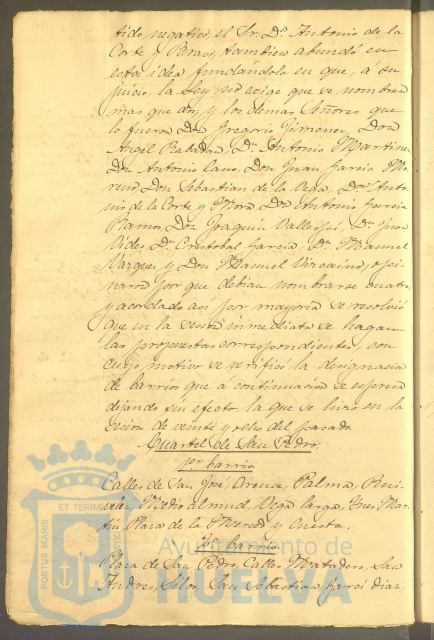 tido negativo, el Sr. Dn. Antonio de la
Corte y Bravo, tambien abundó en
esta idea fundandola en que, á su
juicio, la Ley no exige que se nombren
mas que dos, y los demas Señores que
lo fueron Don Gregorio Jimenez, Don
Angel Rebollo, Dn. Antonio Martinez
Dn. Antonio Cano, Don Juan Garcia Mo
reno, Don Sebastian de la Vega, Don Anto
nio de la Corte y Mora, Don Antonio Garcia
Ramos, Don Joaquin Vallejo, Dn. Juan
Dn. Cristobal Garcia, Dn. Manuel
Vazquez y Don Manuel Vizcaino, opi
naron por que debian nombrarse cuatro,
y acordado asi por mayoria se resolvió
que en la sesion inmediata se hagan
las propuestas correspondientes, con
cuyo motivo se verificó la designacion
de barrios que á continuacion se espresa
dejando sin efecto la que se hizo en la
sesion de veinte y ocho del pasado.
Cuartel de San Pedro.
1er barrio
Calles de San José, Palma, Rui
Medio almud, Vega larga, Mar
tin Plaza de la Merced y Cuesta.
2o barrio
Plaza de San Pedro, Calles Matadero, San
Andres, Silos, San Sebastian, Garci diaz,
PORTUS MARIS
ET TERRAE
Ayuntamiento de
HUELVA